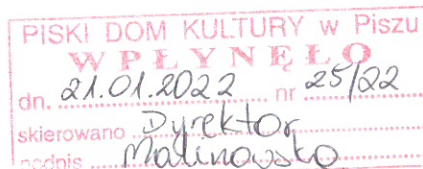 PISKI DOM KULTURY w Piszu
WPŁYNĘŁO
dn. 21.01.2022 nr 25/22
skierowano Dyrektor
podpis Malinowska